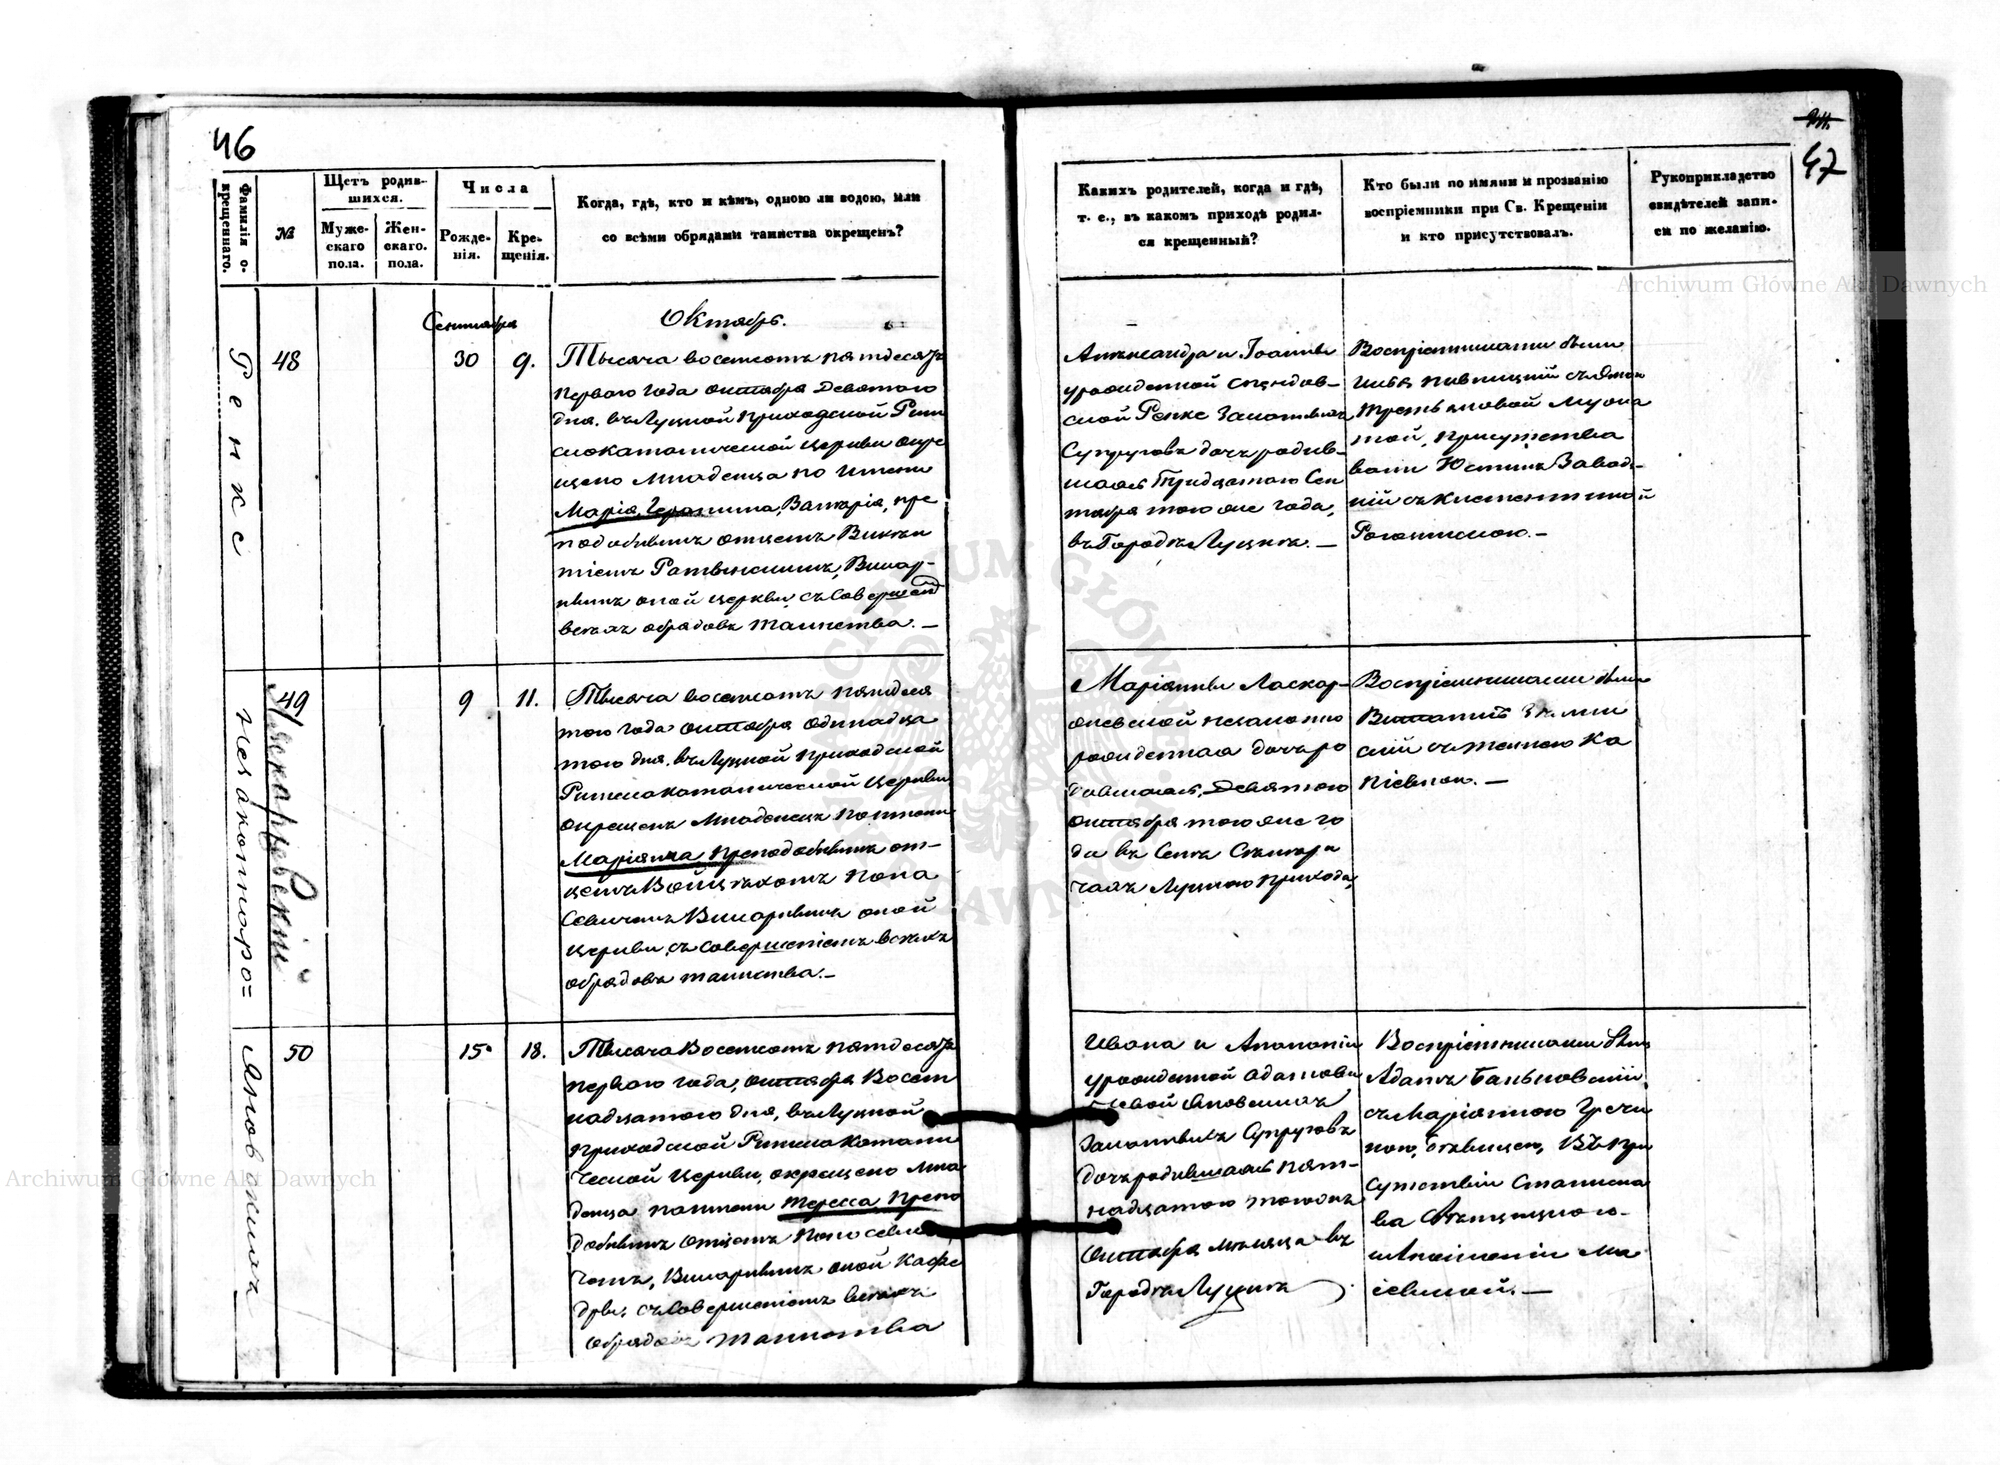 46
Фамилія о-
крещеннаго.
№
Щетъ родив-
шихся.
Муже-
скаго
пола.
Жен-
скаго.
пола.
Числа
Рожде-
нія.
Кре-
щенія.
Когда, гдѣ, кто и кѣмъ, одною ли водою, или
со всѣми обрядами таинства окрещенъ?
Ренке
48
Сентября
30
9.
Октябрь.
Тысяча восемсотъ пятдесятъ
перваго года октября Девятого
дня. въ Луцкой Приходской Рим
скокатолической Церкви окре
щено Младенца по Имени
Марія, Валерія, пре
подобнымъ отцемъ Викен
тіемъ Викар-
нымъ оной церкви, съ Соверше
всѣхъ обрядовъ Таинства. —
Незаконноро=
Ляскаржевскій
49
9
11.
Тысяча восемсотъ пятдеся
того года октября одинадца
того дня. въ Луцкой Приходской
Римскокатолической Церкви
окрещенъ Младенецъ по имени
Маріянна Преподобнымъ от-
цемъ Войцѣхомъ Попла
Викарнымъ оной
Церкви, съ Совершеніемъ всѣхъ
обрядовъ таинства. —
Яновскихъ
50
15
18.
Тысяча Восемсотъ пятдесятъ
перваго года, октября Восем
надцатого дня, въ Луцкой
Приходской Римскокатоли
ческой Церкви, окрещено Мла
денца по имени Тересса Препо
добнымъ отцемъ
Викарнымъ оной Кафе
дры, съ Совершеніемъ всѣхъ
обрядовъ Таинства
47
Какихъ родителей, когда и гдѣ,
т. е., въ какомъ приходѣ родил-
ся крещенный?
Кто были по имяни и прозванію
воспріемники при Св. Крещеніи
и кто присутствовалъ.
Рукоприкладство
свидѣтелей запи-
си по желанію.
Александра и Іоанны
урожденной
Ренке Законныхъ
Супруговъ дочь родив-
шаяся Тридцатого Сен
тября того же года,
въ Городѣ Луцкѣ. —
Воспріемниками были
Присутство
вали Юстинъ Завад-
кій съ Клементиной
Маріянны Ляскар-
жевской незаконно
рожденная дочь ро
дившаяся, Девятого
октября того же го
да въ Селѣ
Луцкого Прихода,
Воспріемниками были
Ивана и Аполоніи
урожденной
Яновскихъ
Законныхъ Супруговъ
дочь родившаяся пят-
надцатого того же
октября мѣсяца въ
Городѣ Луцкѣ
Воспріемниками были
Адамъ
съ Маріянною
Въ при
сутствіи Станисла
ва
и Аполоніи
Archiwum Główne Akt Dawnych
Archiwum Główne Akt Dawnych
ARCHIWUM GŁÓWNE AKT DAWNYCH